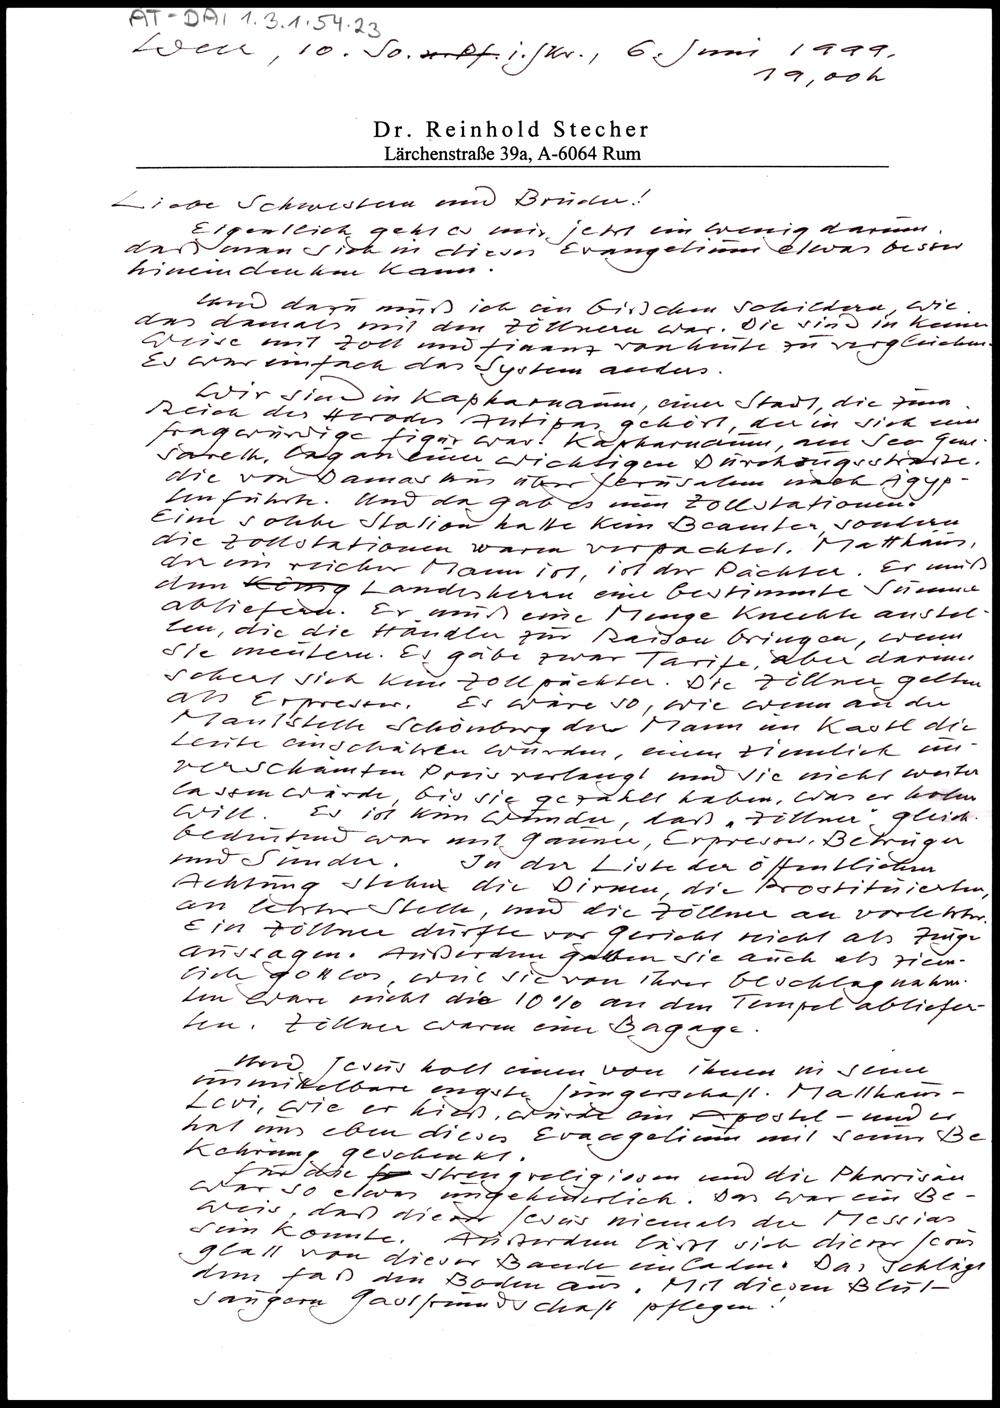 AT-DAI 1.3.1.54.23
Wen, 10. So. n. Pf. i. Jkr., 6. Juni 1999.
19,00h
Dr. Reinhold Stecher
Lärchenstraße 39a, A-6064 Rum
Liebe Schwestern und Brüder!
Eigentlich geht es mir jetzt ein wenig darum,
daß man sich in dieses Evangelium etwas besser
hineindenken kann.
Und dazu muß ich ein bißchen schildern, wie
das damals mit den Zöllnern war. Die sind in keiner
Weise mit Zoll und Finanz von heute zu vergleichen.
Es war einfach das System anders.
Wir sind in Kapharnaum, einer Stadt, die zum
Reich des Herodes Antipas gehört, der in sich eine
fragwürdige Figur war. Kapharnaum, am See Gene-
sareth, lag an einer wichtigen Durchzugsstraße,
die von Damaskus über Jerusalem nach Ägyp-
ten führte. Und da gab es nun Zollstationen.
Eine solche Station hatte kein Beamter, sondern
die Zollstationen waren verpachtet. Matthäus,
der ein reicher Mann ist, ist der Pächter. Er muß
dem König Landesherrn eine bestimmte Summe
abliefern. Er muß eine Menge Knechte anstel-
len, die die Händler zur Raison bringen, wenn
sie meutern. Es gäbe zwar Tarife, aber darum
schert sich kein Zollpächter. Die Zöllner gelten
als Erpresser. Es wäre so, wie wenn an der
Mautstelle Schönberg der Mann im Kastl die
Leute einschätzen würden, einen ziemlich un-
verschämten Preis verlangt und sie nicht weiter
lassen würde, bis sie gezahlt haben, was er haben
will. Es ist kein Wunder, daß "Zöllner" gleich-
bedeutend war mit Gauner, Erpresser, Betrüger
und Sünder. In der Liste der öffentlichen
Achtung stehen die Dirnen, die Prostituierten,
an letzter Stelle, und die Zöllner an vorletzter.
Ein Zöllner durfte vor Gericht nicht als Zeuge
aussagen. Außerdem galten sie auch als ziem-
lich gottlos, weil sie von ihrer beschlagnahm-
ten Ware nicht die 10% an den Tempel abliefer-
ten. Zöllner waren eine Bagage.
Und Jesus holt einen von ihnen in seine
unmittelbare engste Jüngerschaft. Matthäus-
Levi, wie er hieß, wurde ein Apostel – und er
hat uns eben dieses Evangelium mit seiner Be-
kehrung geschenkt.
Für die strengreligiösen und die Pharisäer
war so etwas ungeheuerlich. Das war ein Be-
weis, daß dieser Jesus niemals der Messias
sein konnte. Außerdem läßt sich dieser Jesus
glatt von dieser Bande einladen. Das schlägt
dem Faß den Boden aus. Mit diesen Blut-
saugern Gastfreundschaft pflegen!